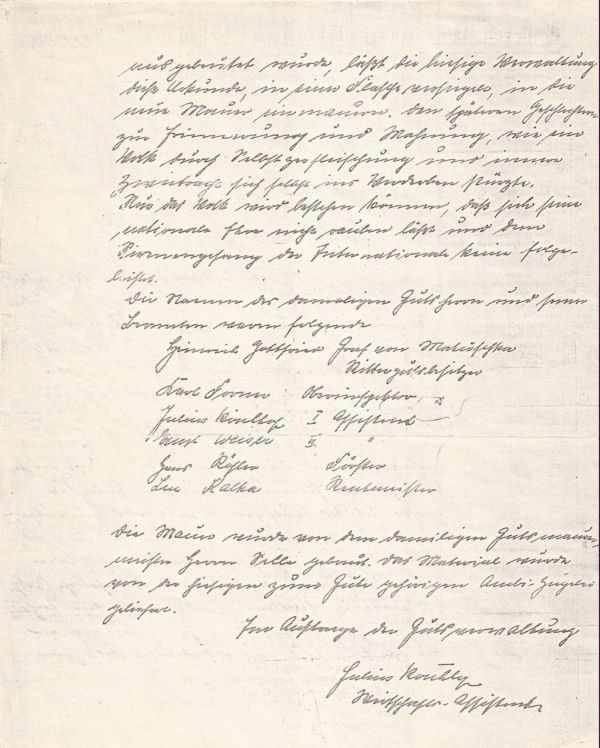 ausgebeutet wurde, läßt die hiesige Verwaltung
diese Urkunde, in einer Flasche versiegelt, in die
neue Mauer einmauern. Den späteren Geschlechtern
zur Erinnerung und Mahnung, wie ein
Volk durch Selbstzerfleischung und innere
sich selbst ins Verderben stürzte.
Nur das Volk wird bestehen können, daß sich seine
nationale Ehre nicht rauben läßt und dem
Sirenengesang der Internationale keine Folge
leistet.
Die Namen des damaligen Gutsherrn und seiner
Beamten waren folgende
Heinrich Gottfried Graf von Matuschka
Rittergutsbesitzer
Karl Oberinspektor
Julius I Assistent
Weiser II "
Hans Förster
Leo Kalka Rentmeister
Die Mauer wurde von dem damaligen Gutsmaurer
meister Herrn Selle gebaut. Das Material wurde
von der hiesigen zum Gute gehörigen
geliefert.
Im Auftrage der Gutsverwaltung
Julius
Wirtschafts-Assistent